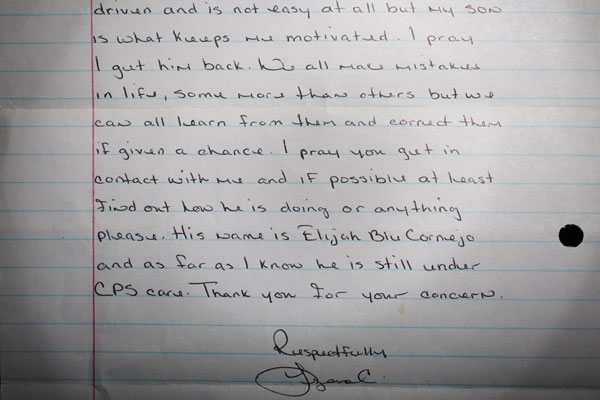 driven and is not easy at all but my son
is what keeps me motivated. I pray
I get him back. We all make mistakes
in life, some more than others but we
can all learn from them and correct them
if given a chance. I pray you get in
contact with me and if possible at least
find out how he is doing or anything
please. His name is Elijah Blu Cornejo
and as far as I know he is still under
CPS care. Thank you for your concern.
Respectfully